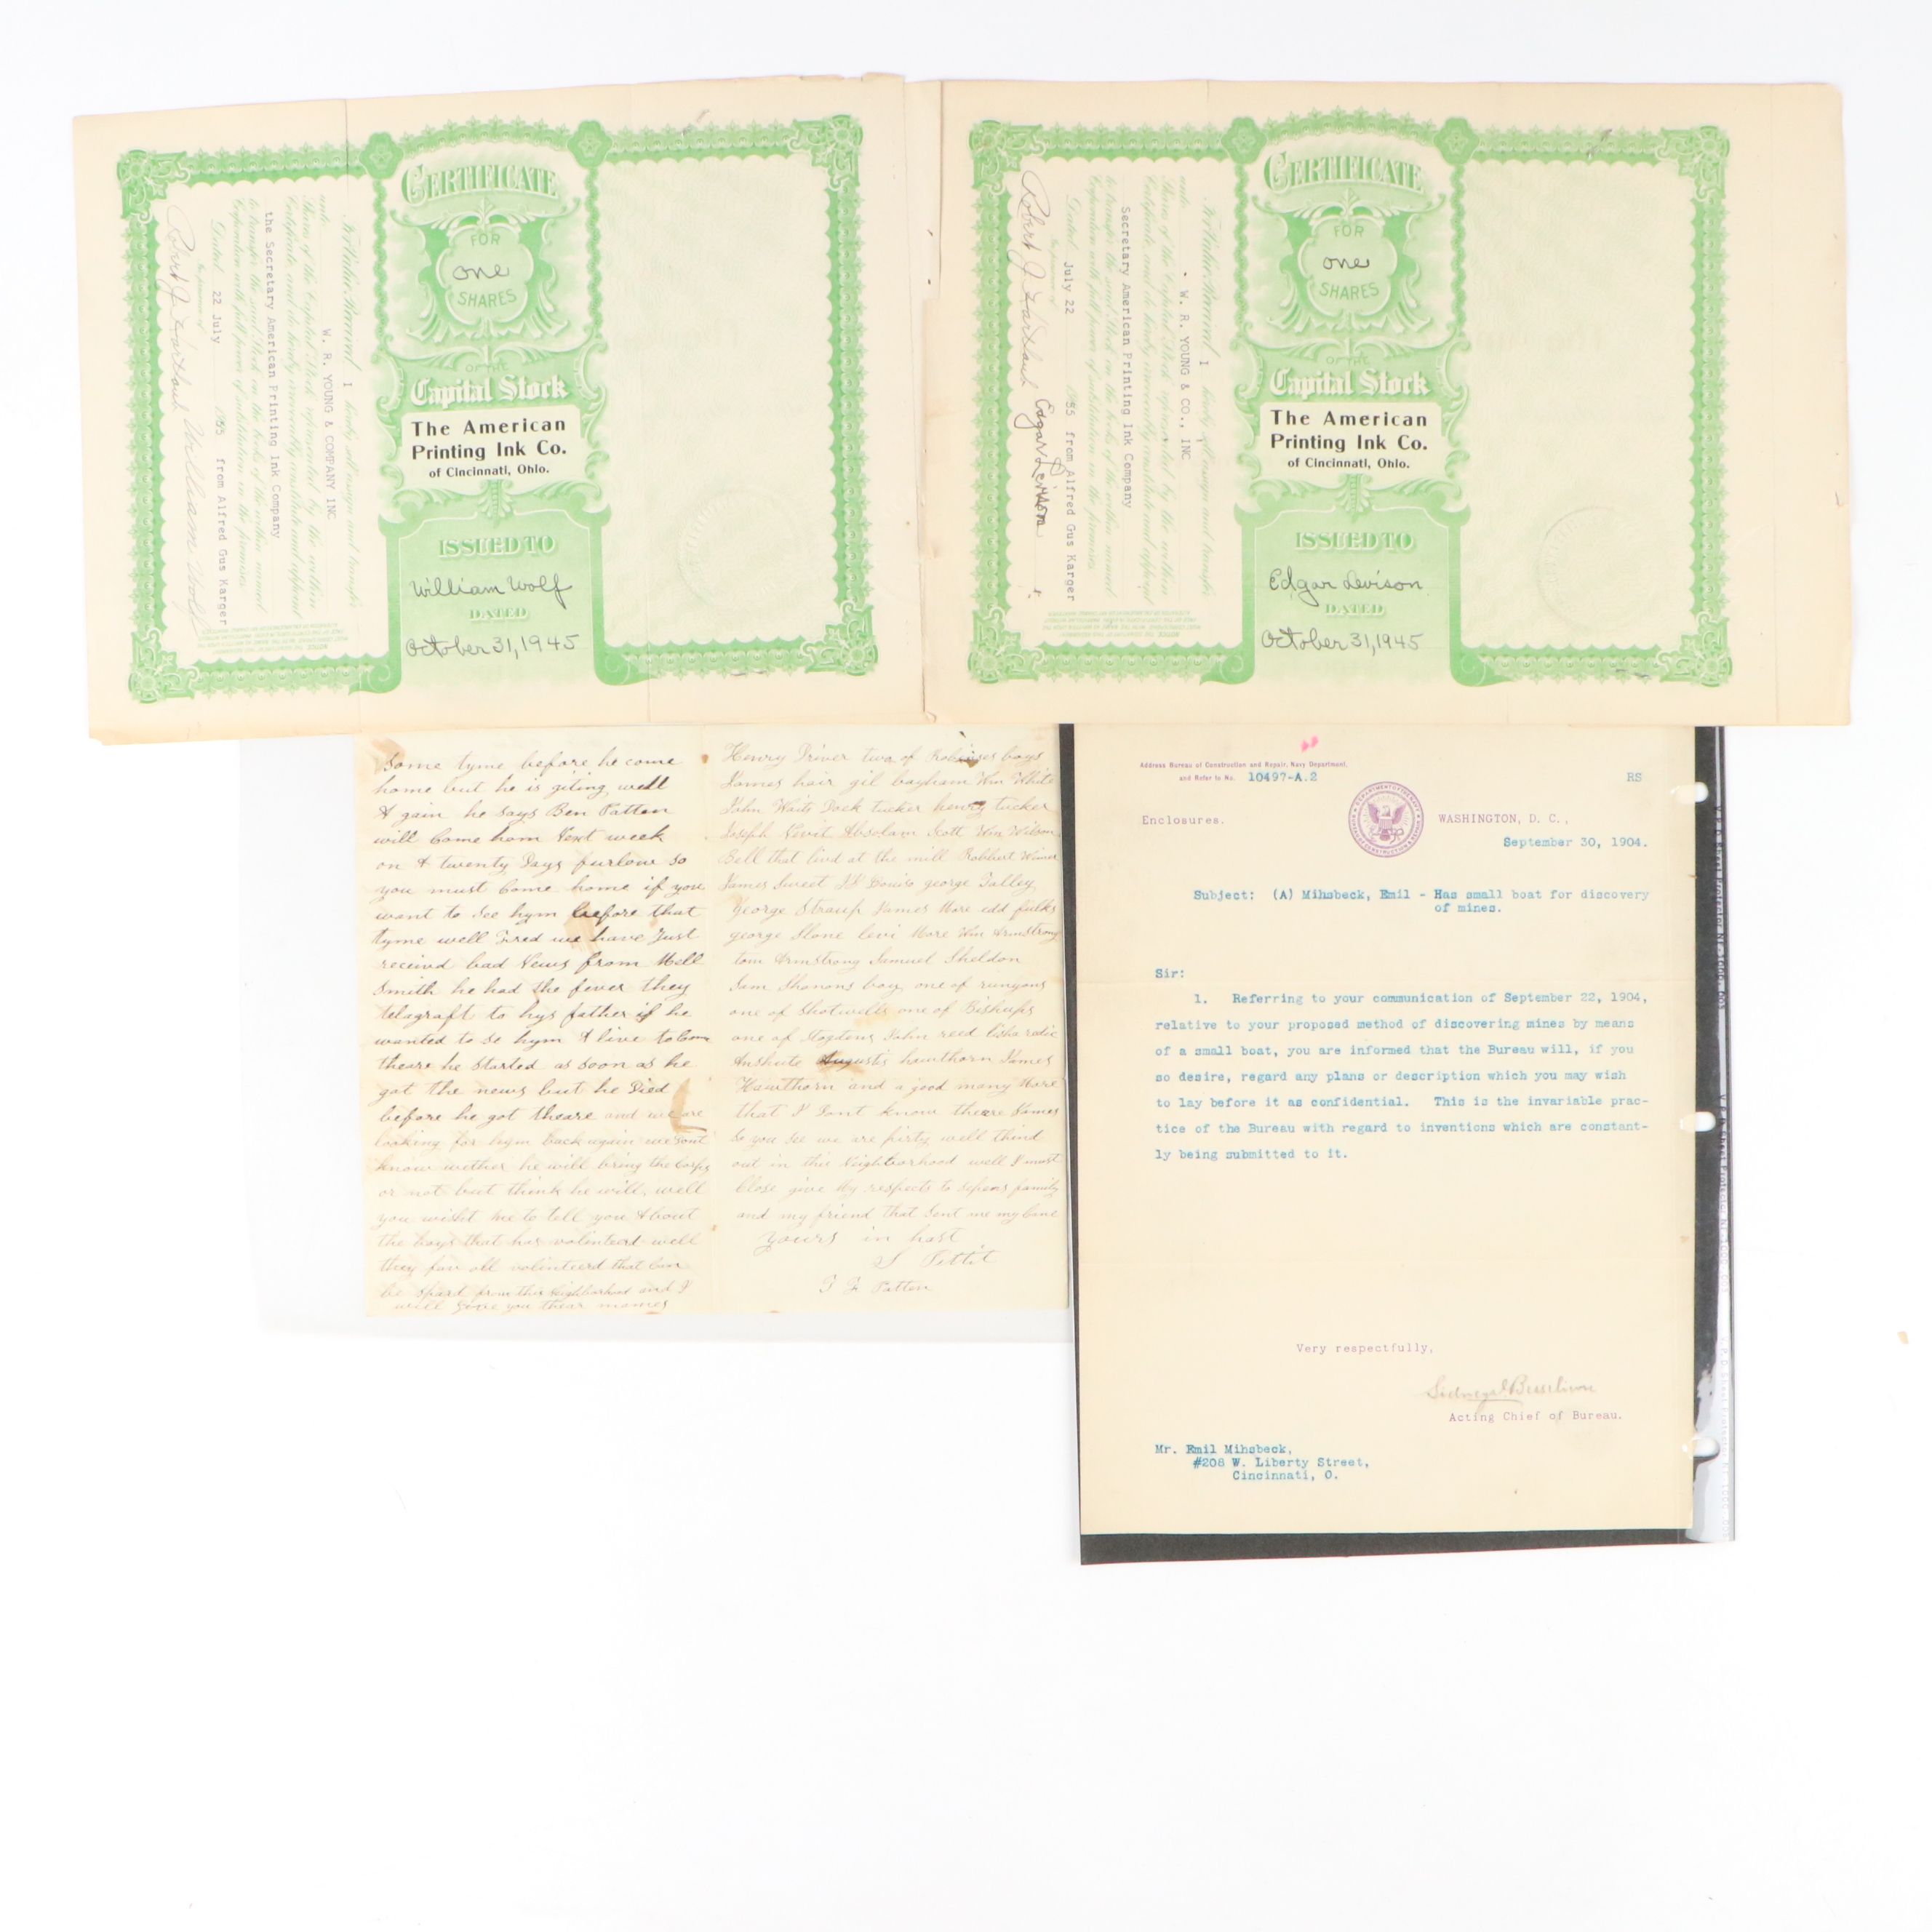 CERTIFICATE
FOR
one
SHARES
OF THE
Capital Stock
The American
Printing Ink Co.
of Cincinnati, Ohio.
ISSUED TO
William Wolf
DATED
October 31, 1945
For Value Received, I hereby sell, assign and transfer
unto
W. R. YOUNG & COMPANY INC
Shares of the Capital Stock represented by the within
Certificate and do hereby irrevocably constitute and appoint
the Secretary American Printing Ink Company
to transfer the said Stock on the books of the within named
Corporation with full power of substitution in the premises.
Dated 22 July 1955 from Alfred Gus Karger
In presence of
William Wolf
CERTIFICATE
FOR
one
SHARES
OF THE
Capital Stock
The American
Printing Ink Co.
of Cincinnati, Ohio.
ISSUED TO
Edgar Levison
DATED
October 31, 1945
For Value Received, I hereby sell, assign and transfer
unto
W. R. YOUNG & CO., INC
Shares of the Capital Stock represented by the within
Certificate and do hereby irrevocably constitute and appoint
Secretary American Printing Ink Company
to transfer the said Stock on the books of the within named
Corporation with full power of substitution in the premises.
Dated July 22 1955 from Alfred Gus Karger
In presence of
Robert J Edgar Levison
Some tyme before he come
home but he is giting well
A gain he says Ben Patten
will Come hom Next week
on A twenty Days furlow so
you must Come home if you
want to see hym before that
tyme well Fred we have Just
receivd bad News from Mell
Smith he had the fever they
telagraft to hys father if he
wanted to se hym A live to Come
theare he started as soon as he
got the news but he Died
before he got theare and we are
looking for hym back again we Dont
know wether he will bring the Corps
or not but think he will, well
you wisht me to tell you About
the boys that has volenteerd well
they fav all volinteerd that Can
be spard from this Neighborhood and I
will give you thear names
Henry Driver two of boys
James hair gil bayham Wm White
John Waits Dock tucker henry tucker
Joseph Absolam Scott Wm Wilson
Bell that livd at the mill Robbert
James Sweet george Talley
george James More edd fulks
george Slone levi More Wm Armstrong
tom Armstrong Samuel Sheldon
Sam Shanons boy one of runyons
one of Shotwells one of Bishups
one of John reed
Augustis hawthorn James
Hawthorn and a good many More
that I Dont know theare Names
So you See we are pirty well thind
out in this Neighborhood well I must
Close give My respects to family
and my friend that Sent me my Cane
yours in hast
S Pettit
Patten
Address Bureau of Construction and Repair, Navy Department,
and Refer to No. 10497-A.2
RS
Enclosures.
WASHINGTON, D. C.,
September 30, 1904.
Subject: (A) Mihsbeck, Emil - Has small boat for discovery
of mines.
Sir:
1. Referring to your communication of September 22, 1904,
relative to your proposed method of discovering mines by means
of a small boat, you are informed that the Bureau will, if you
so desire, regard any plans or description which you may wish
to lay before it as confidential. This is the invariable prac-
tice of the Bureau with regard to inventions which are constant-
ly being submitted to it.
Very respectfully,
Acting Chief of Bureau.
Mr. Emil Mihsbeck,
#208 W. Liberty Street,
Cincinnati, O.